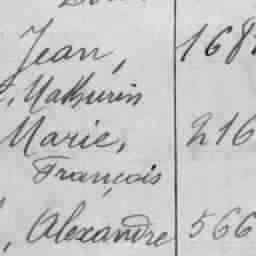 Jean, 168
Mathurin
Marie, 216
François
, Alexandre 566